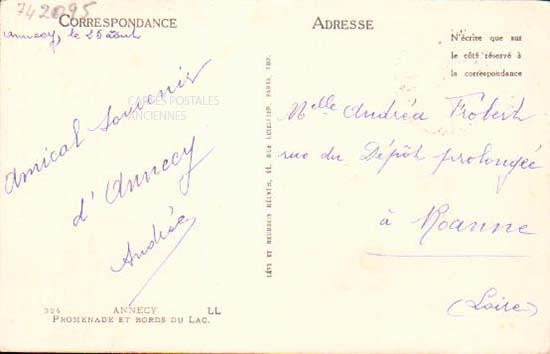 742095
CORRESPONDANCE
annecy, le 25 août
Amical Souvenir
d'Annecy
Andrée
CARTES POSTALES
ANCIENNES
324 ANNECY LL
PROMENADE ET BORDS DU LAC.
LÉVY ET NEURDEIN RÉUNIS, 44, RUE LETELLIER, PARIS, IMP.
ADRESSE
N'écrire que sur
le côté réservé à
la correspondance
Melle Andréa Frobert
rue du Dépôt prolongée
à Roanne
(Loire)